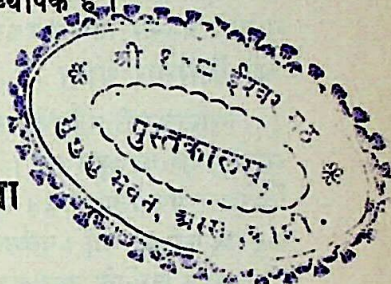 ध्यापक है।
श्री १०८ ईश्वर मठ
पुस्तकालय,
मुमुक्षु भवन, अस्सी, काशी.
ा